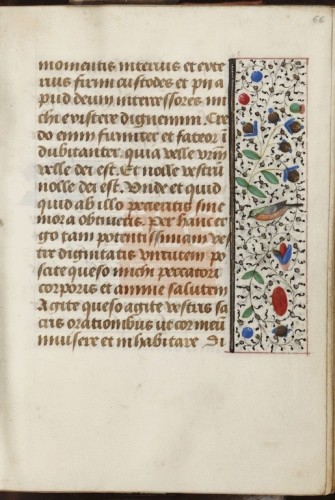 66
momentis interius et exte
rius firmi custodes et pii a
pud deum intercessores mi
chi existere dignemini. Cre
do enim firmiter et fateor ī
dubitanter. quia velle vrm̄
velle dei est. Et nolle vestrū
nolle dei est. Unde et quid
quid ab illo petieritis sine
mora obtinetis. Per hanc er
go tam potentissimam ves
tre dignitatis virtutem po
scite queso michi peccatori
corporis et anime salutem
Agite queso agite vestris sa
cris orationibus ut cor meū
invisere et inhabitare di